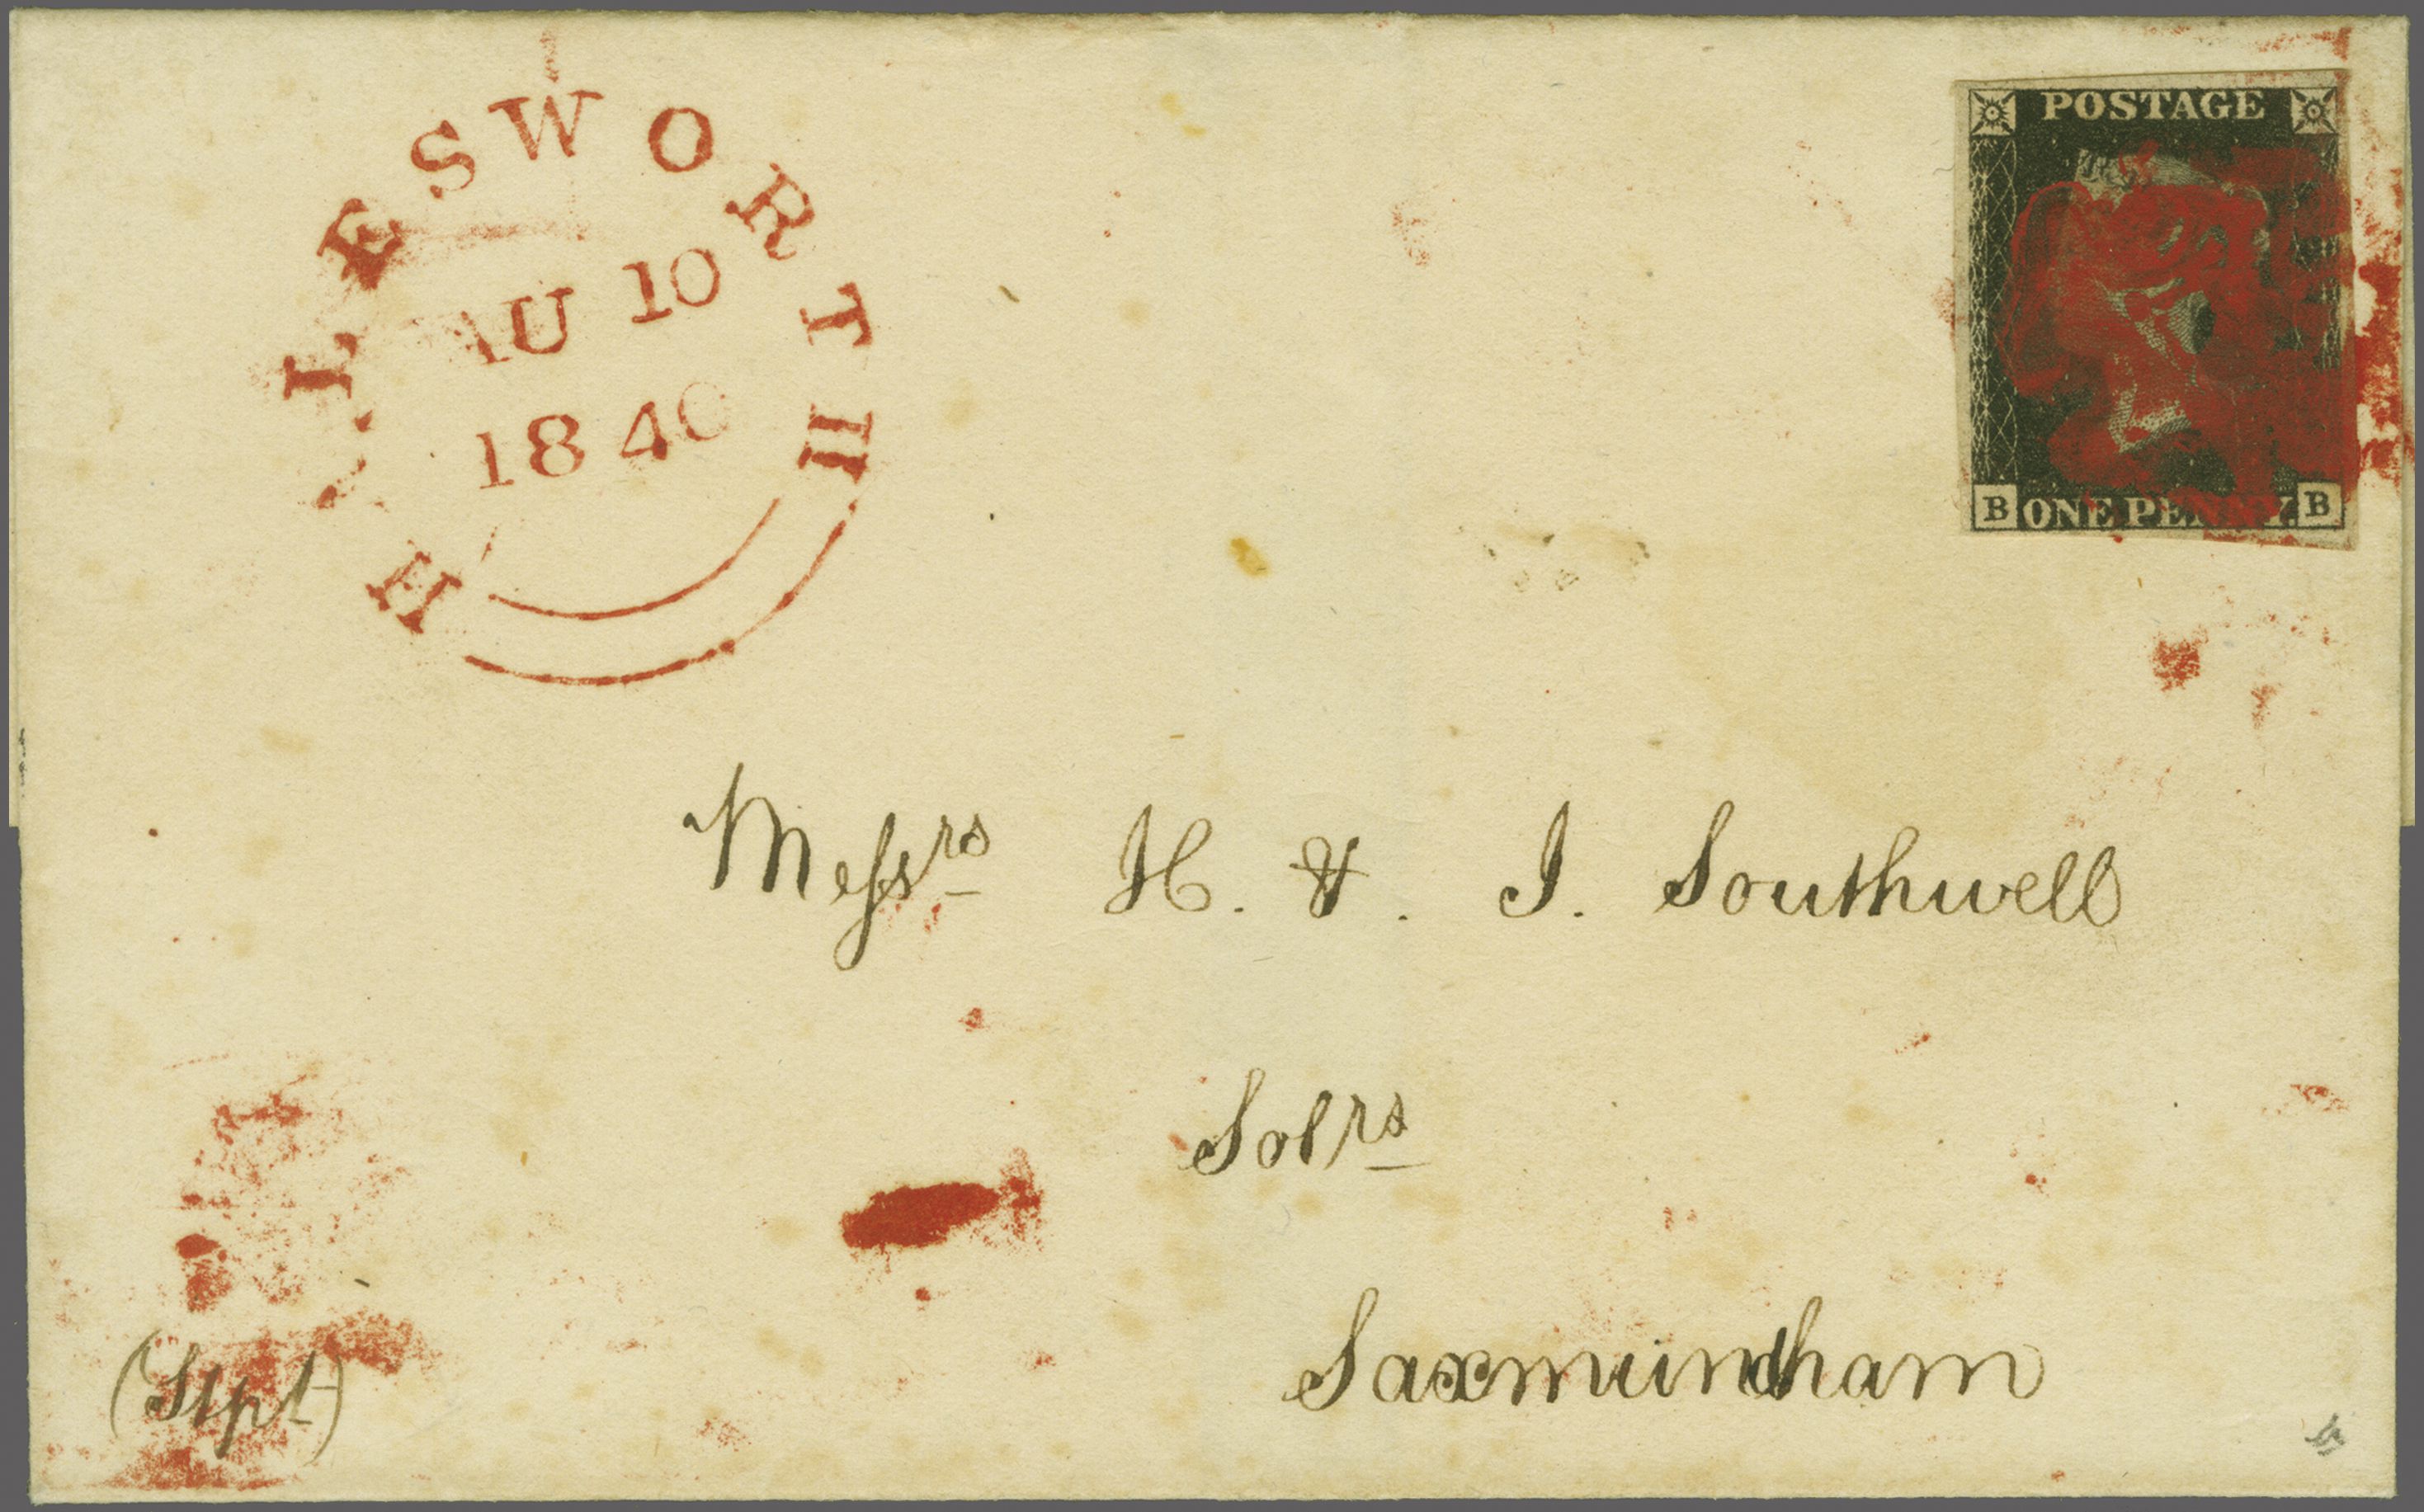 HALESWORTH
AU 10
1840
POSTAGE
B ONE PENNY. B
Messrs H. & J. Southwell
Solrs
Saxmundham
(Stpt)